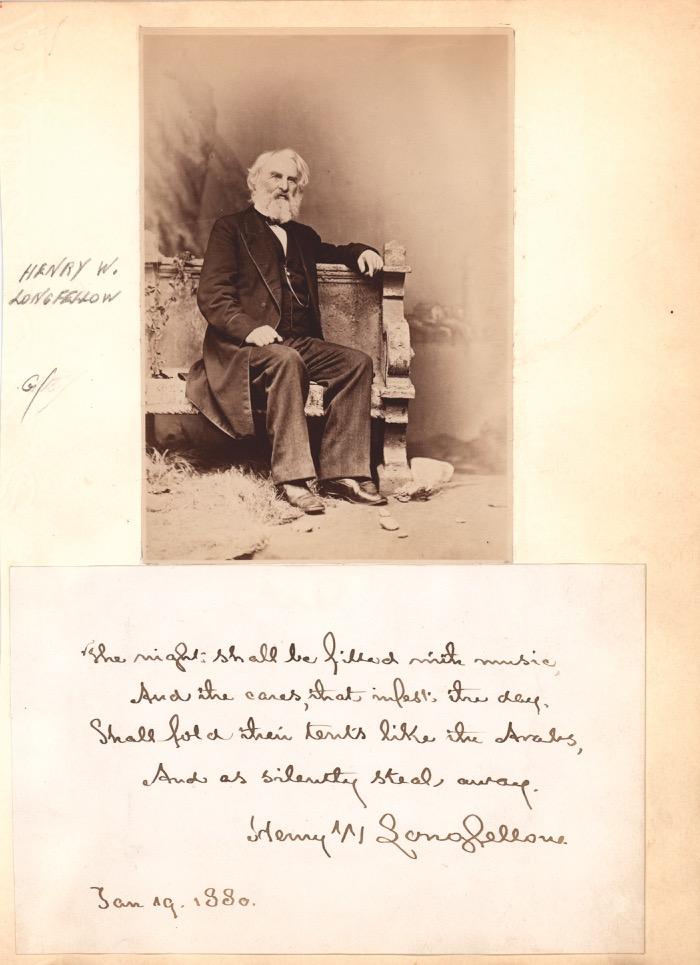 HENRY W.
LONGFELLOW
The night shall be filled with music,
And the cares, that infest the day,
Shall fold their tents like the Arabs,
And as silently steal away.
Henry W Longfellow.
Jan 19. 1880.